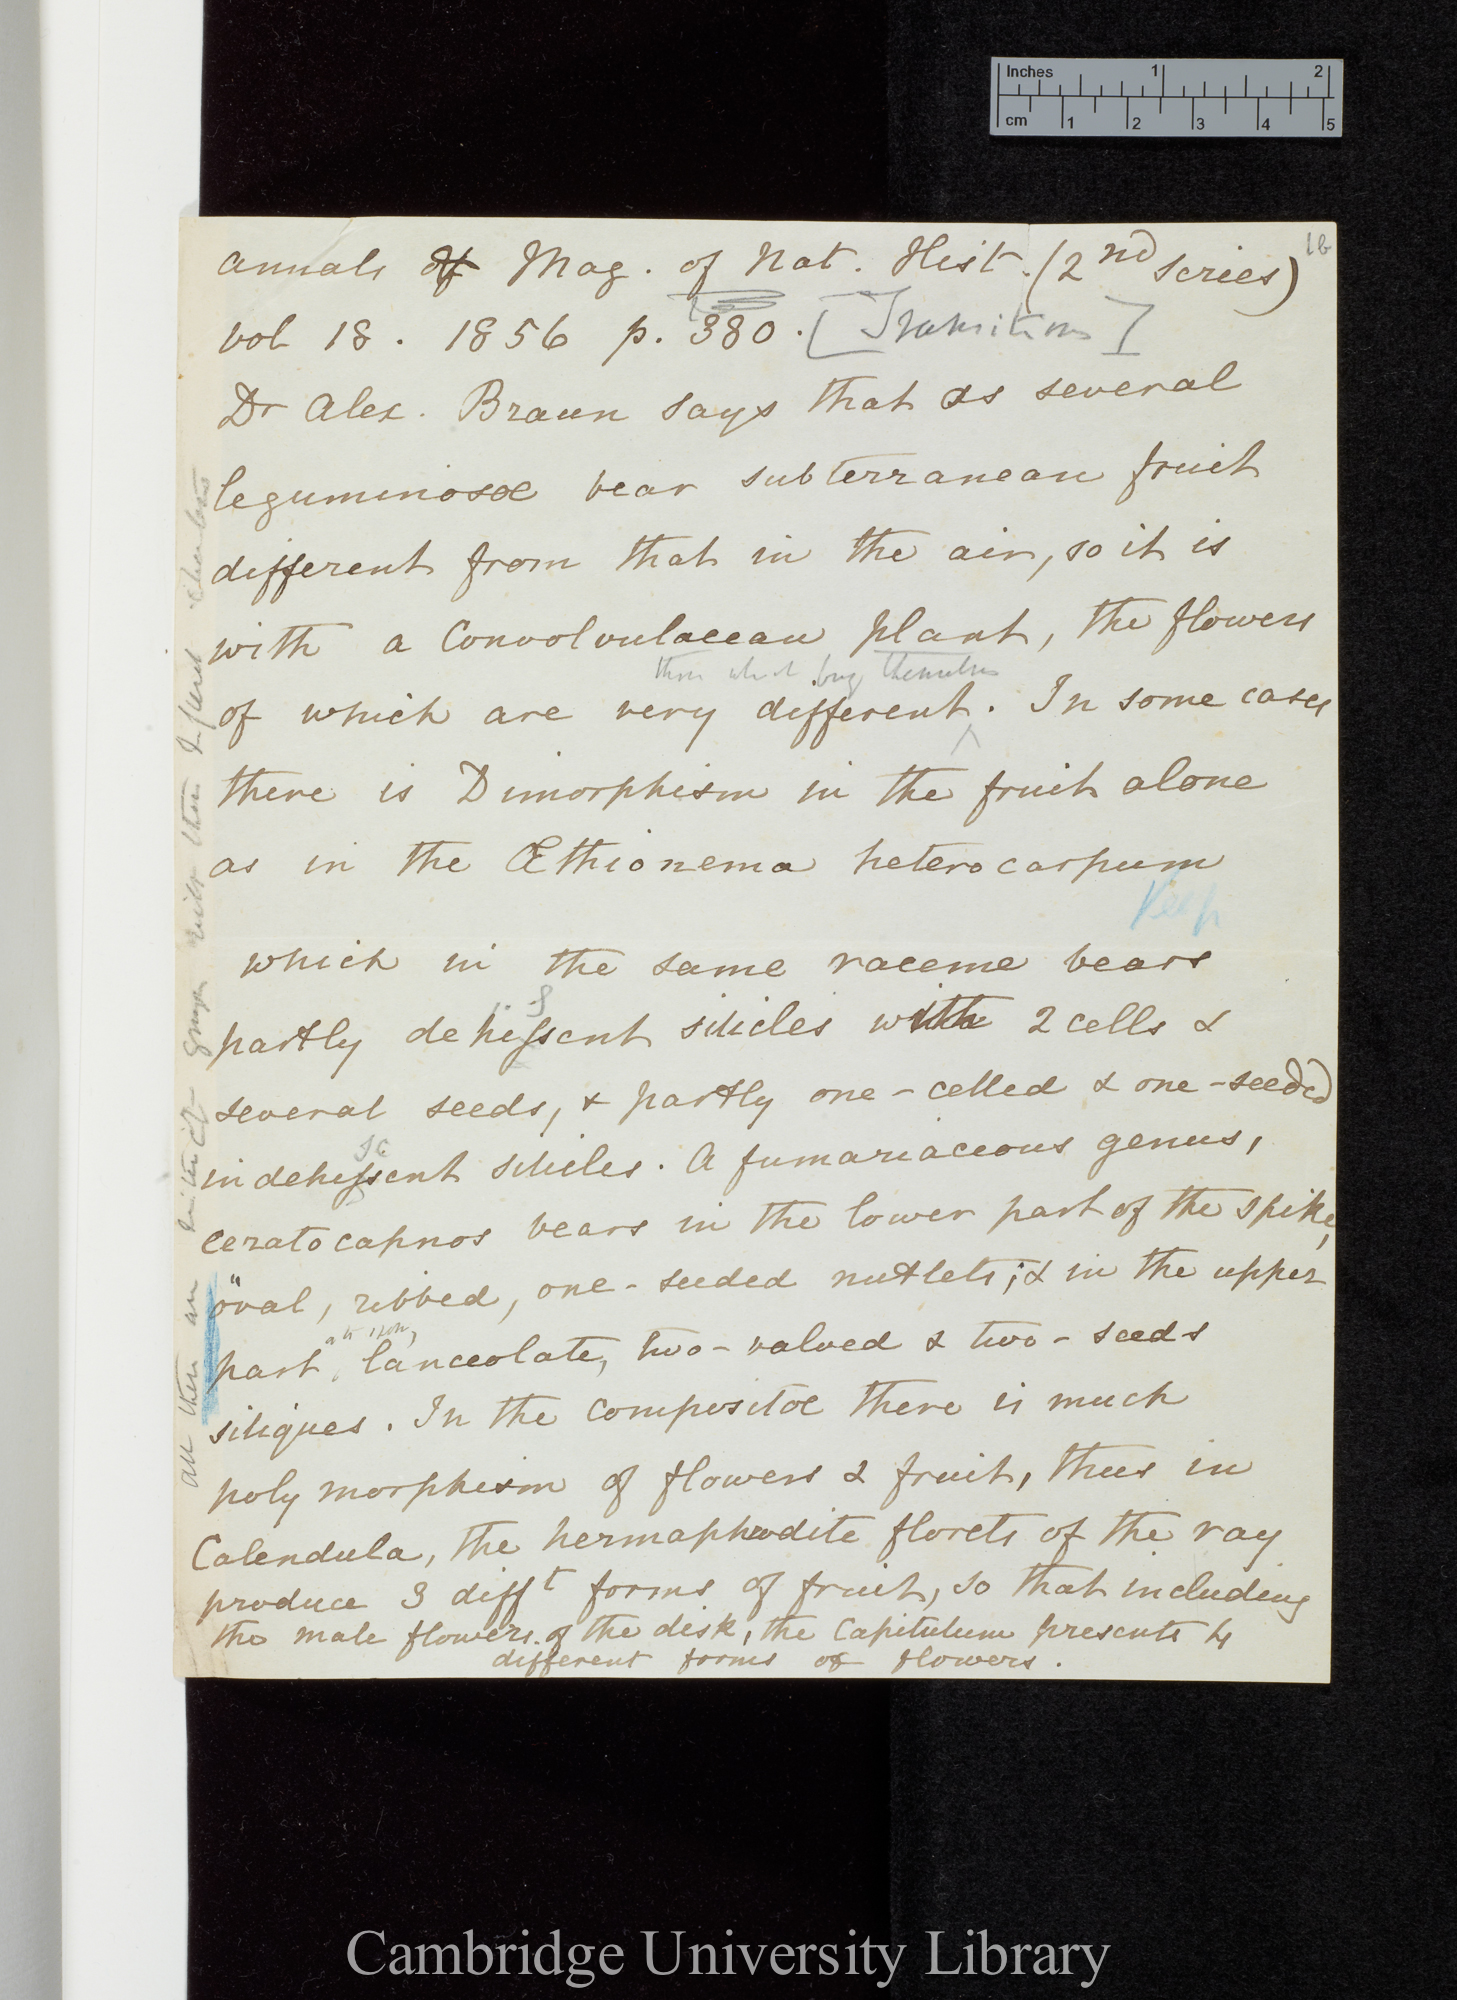 Inches 1 2
cm 1 2 3 4 5
16
Annals & Mag. of Nat. Hist. (2nd series)
vol 18. 1856 p. 380. [Transitions]
Dr Alex. Braun says that as several
leguminosæ bear subterranean fruit
different from that in the air, so it is
with a Convolvulaceau plant, the flowers
of which are very different. In some cases
there is Dimorphism in the fruit alone
as in the Æthionema heterocarpum
Keep
which in the same raceme bears
partly dehissent silicles with 2 cells &
several seeds, & partly one-celled & one-seeded
indehissent silicles. A fumariaceous genus,
ceratocapnos bears in the lower part of the spike,
oval, ribbed, one-seeded nutlets; & in the upper
part, lanceolate, two-valved & two-seeds
siliques. In the compositæ there is much
polymorphism of flowers & fruit, thus in
Calendula, the hermaphrodite florets of the ray
produce 3 difft forms of fruit, so that including
the male flowers of the disk, the Capitulum presents 4
different forms of flowers.
Cambridge University Library